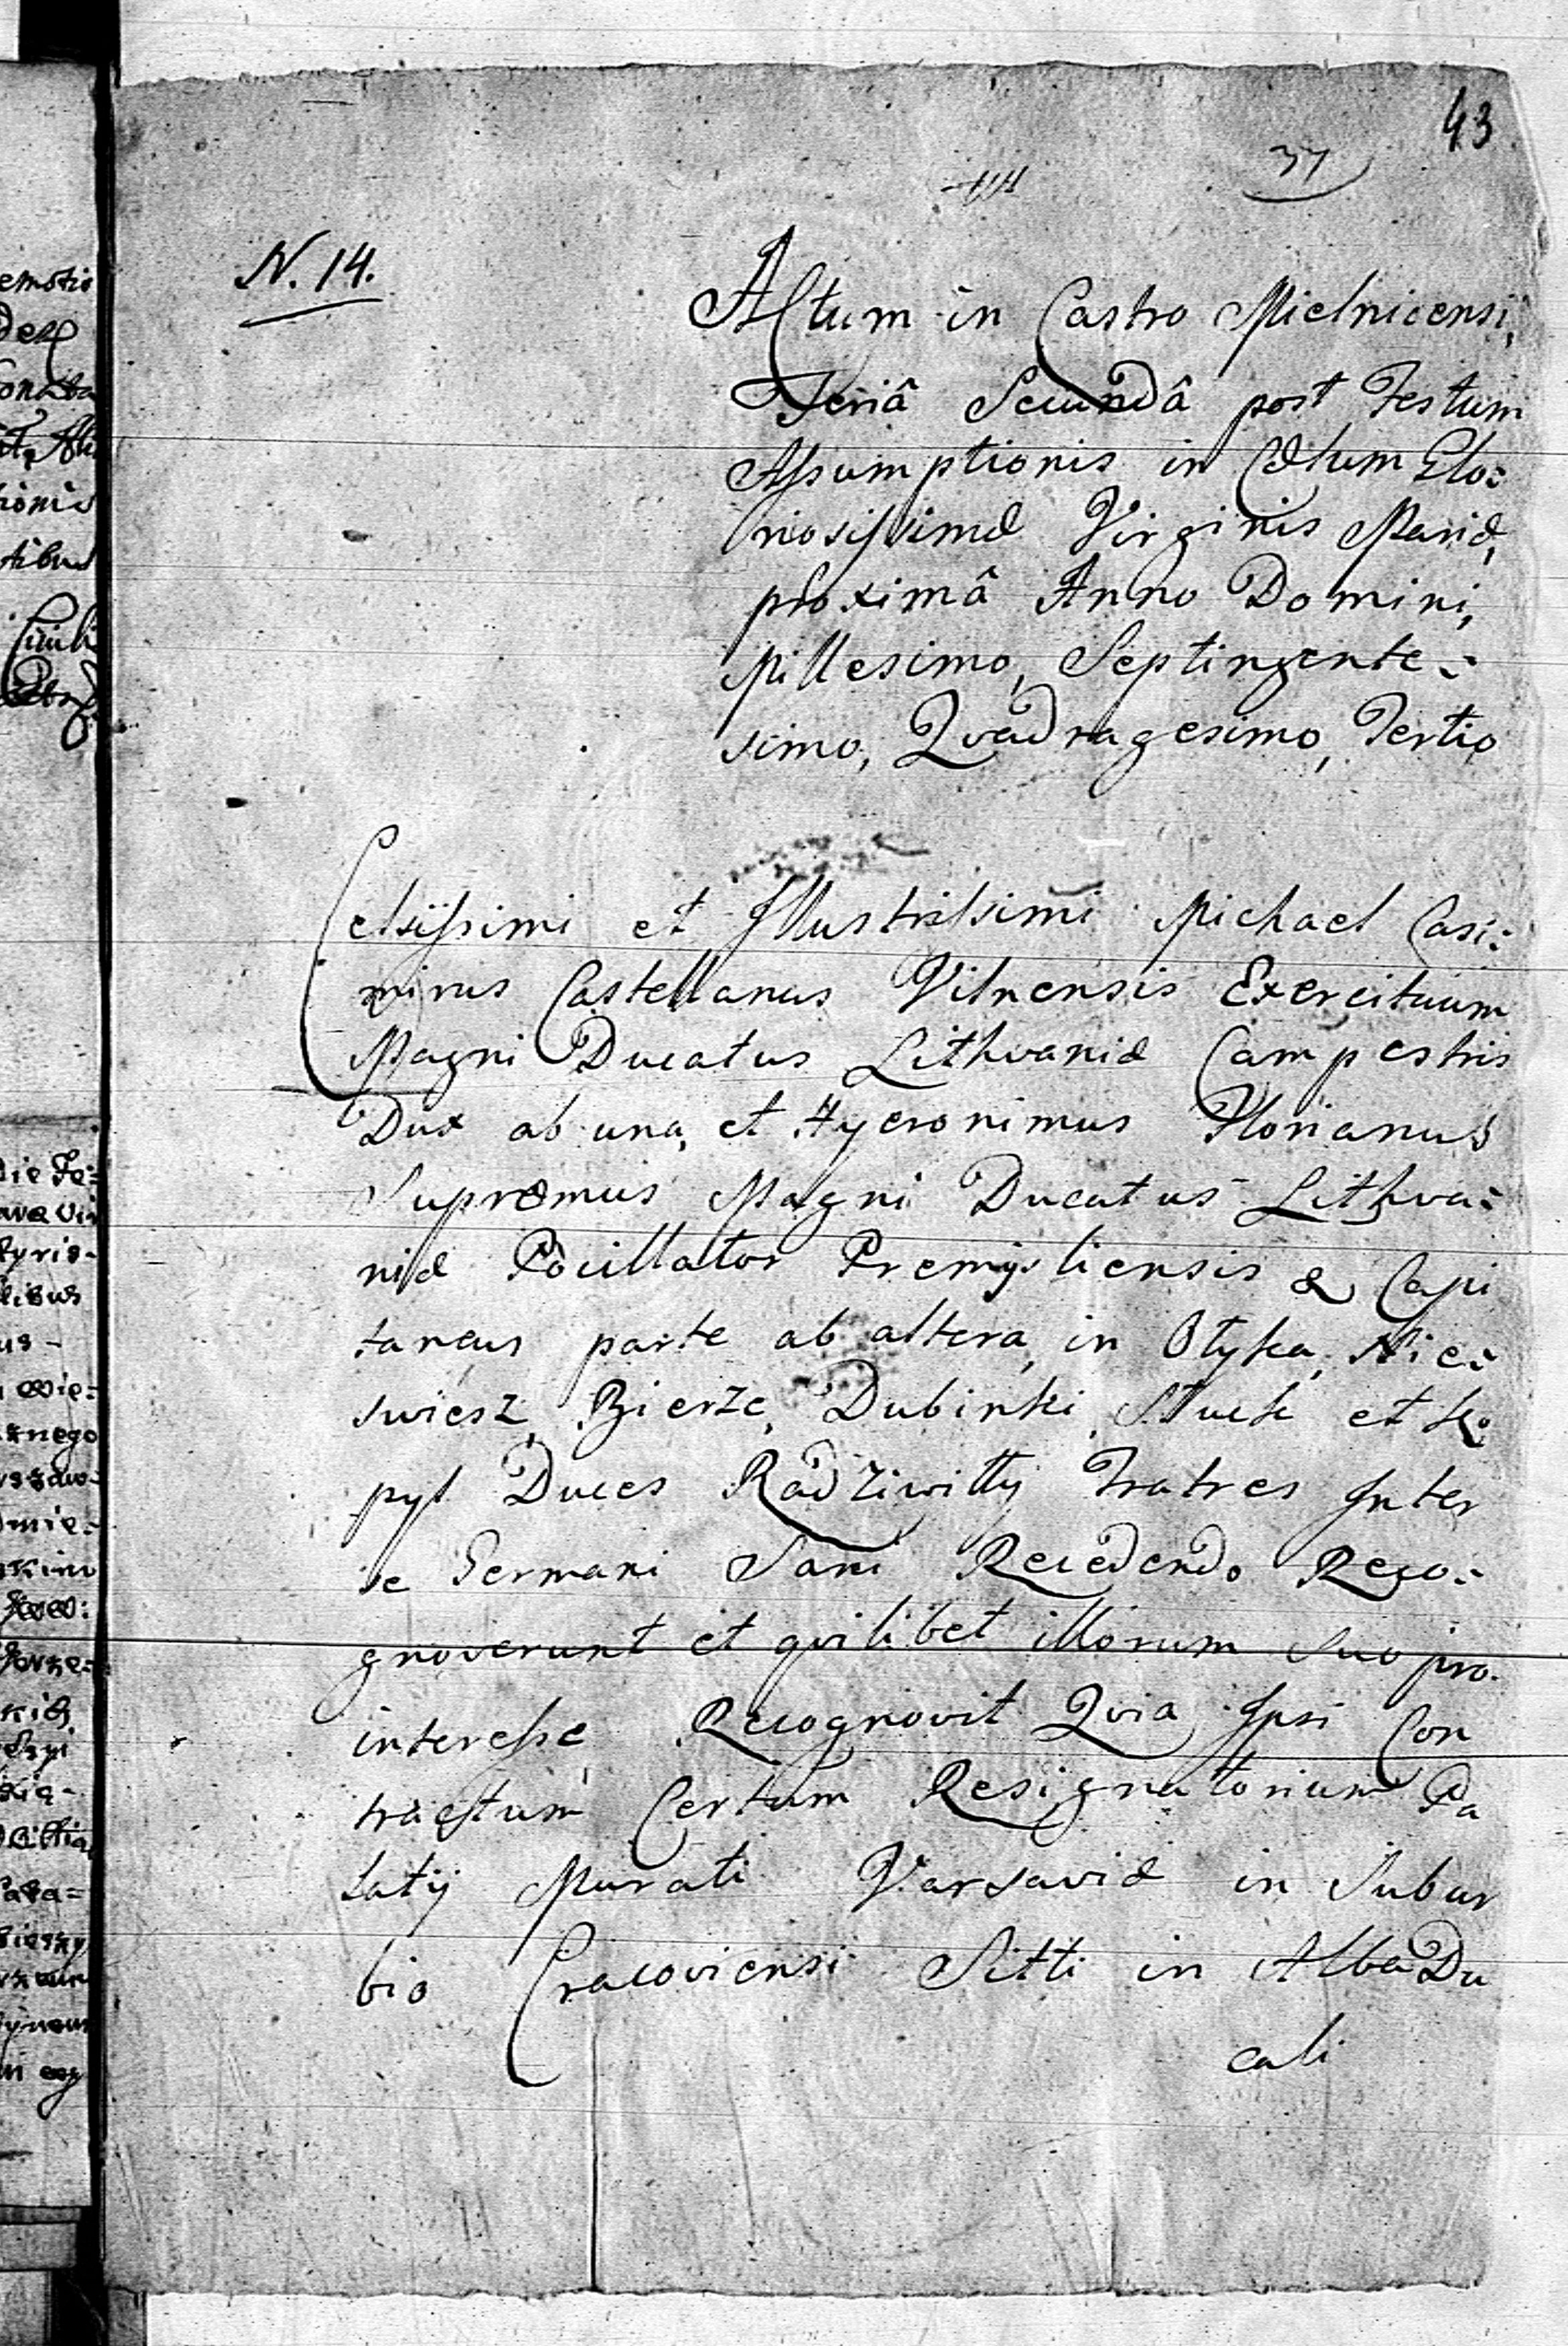 43
37
N. 14.
Actum in Castro Mielnicensi,
Feriâ Secundâ post Festum
Assumptionis in Cœlum Glo:
riosissimæ Virginis Mariæ,
proximâ Anno Domini,
Millesimo, Septingente:
simo, Qvadragesimo, Tertio
Celsissimi et Illustrissimi Michael Casi:
mirus Castellanus Vilnensis Exercituum
Magni Ducatus Lithvaniæ Campestris
Dux ab una, et Hyeronimus Florianus
Supræmus Magni Ducatus Lithva:
niæ Pocillator Premysliensis & Capi
taneus parte ab altera, in Ołyka, Nie:
swiesz, Bierze, Dubinki, Słuck et Ko
pyl Duces Radziwiłły Fratres Inter
se Germani Sani Recedendo Reco:
gnoverunt et qvilibet illorum suo pro
interesse, Recognovit Qvia Ipsi Con
tractum Certum Resignatorium Pa
latij Murati Varsaviæ in Subur
bio Cracoviensi Sitti in Alba Du
cali
emotio
ionis
die Fe=
kyris-
libus
us-
Wię:
znego
mie:
Para=